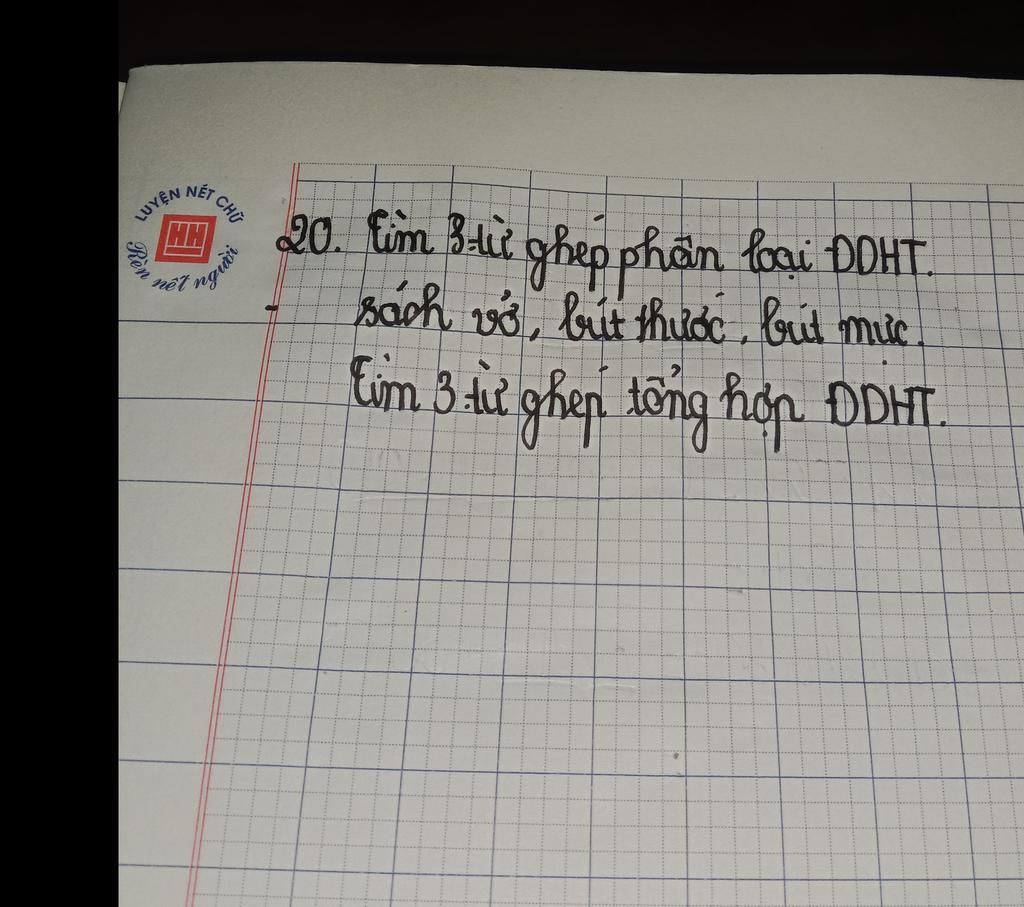 LUYỆN NÉT CHỮ
HH
Rèn nết người
20. Tìm 3 từ ghép phân loại ĐDHT.
- sách vở, bút thước, bút mực.
Tìm 3 từ ghép tổng hợp ĐDHT.